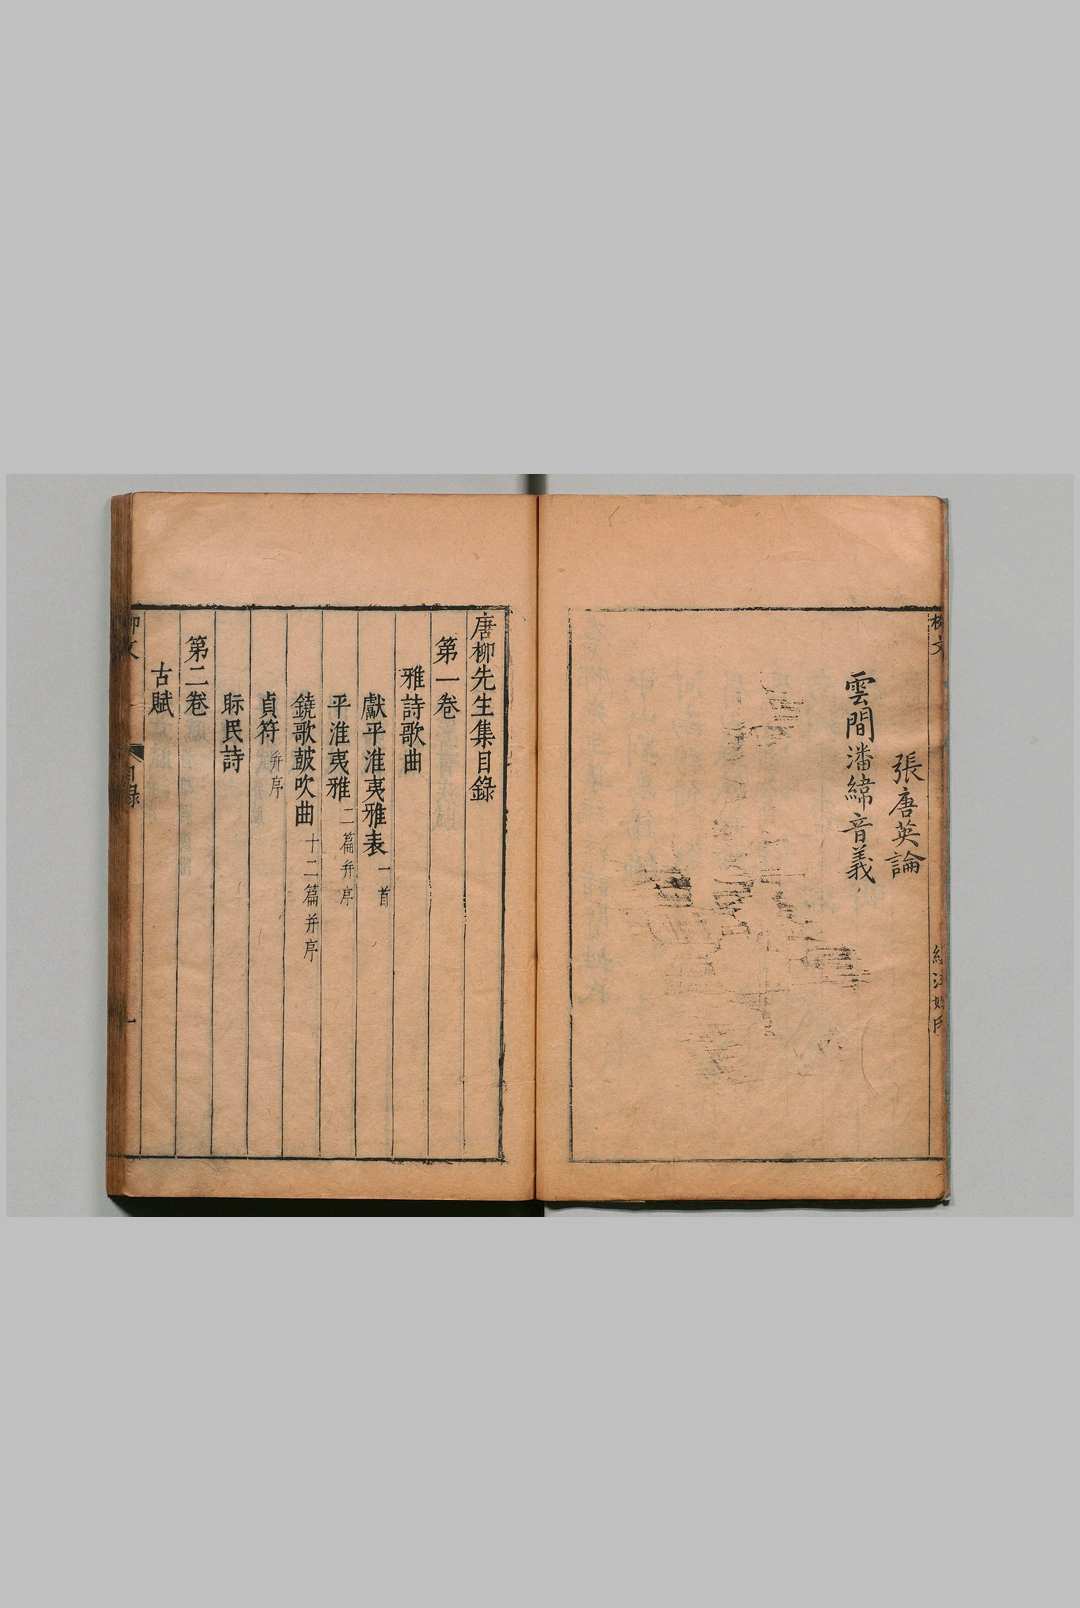 張唐英論
雲間潘緯音義
唐柳先生集目錄
第一卷
雅詩歌曲
獻平淮夷雅表一首
平淮夷雅二篇并序
鐃歌鼓吹曲十二篇并序
貞符并序
眎民詩
第二卷
古賦